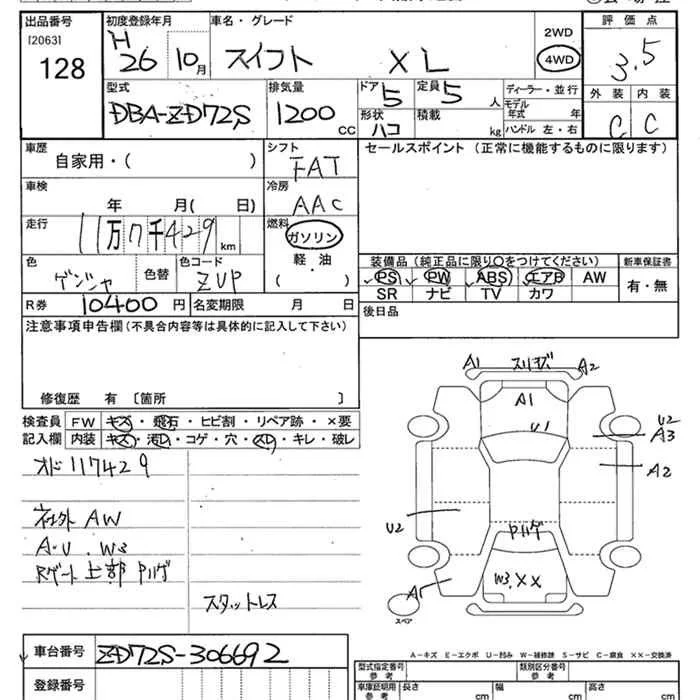 出品番号 初度登録年月 車名・グレード 2WD 評価点
[2063] H
128 26 10月 スイフト XL 4WD 3.5
型式 排気量 ドア 定員 ディーラー・並行 外装 内装
DBA-ZD72S 1200 CC 5 5 人 モデル年式 年 C C
形状 ハコ 積載 kg ハンドル 左・右
車歴 シフト セールスポイント (正常に機能するものに限ります)
自家用・( ) FAT
車検 冷房
年 月( 日) AAC
走行 11万7千429km 燃料
ガソリン
軽・油
( )
色 色替 色コード
ZVP
装備品 (純正品に限り○をつけてください) 新車保証書
PS PW ABS エアB AW 有・無
SR ナビ TV カワ
R券 10400 円 名変期限 月 日 後日品
注意事項申告欄 (不具合内容等は具体的に記入して下さい)
修復歴 有 〔箇所 〕
検査員 FW キズ・飛石・ヒビ割・リペア跡・×要
記入欄 内装 キズ・汚レ・コゲ・穴・スレ・キレ・破レ
117429
社外 AW
A・U . W3
Rゲート上部
スタットレス
A1 スリキズ A2
A1
U1
U2
A3
A2
U2
W3.XX
A1
スペア
A-キズ E-エクボ U-凹み W-補修跡 S-サビ C-腐食 ××-交換済
車台番号 ZD72S-306692
登録番号
型式指定番号 参考 類別区分番号 参考
車庫証明用 参考 長さ cm 幅 cm 高さ cm